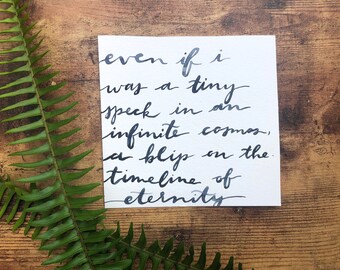 even if i
was a tiny
speck in an
infinite cosmos,
a blip on the
timeline of
eternity